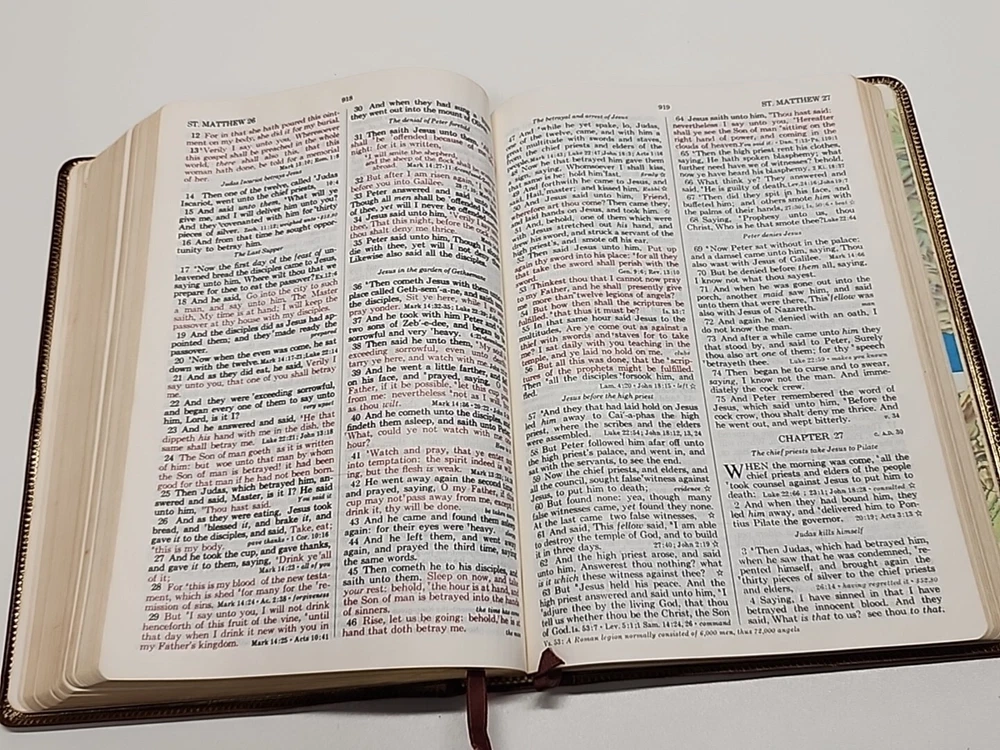 918
ST. MATTHEW 26
12 For in that she hath poured this oint-
ment on my body, she did it for my burial.
13 Verily I say unto you, Wheresoever
this gospel shall be preached in the whole
world, there shall also this, that this
woman hath done, be told for a memorial
of her.
Judas bargains to betray Jesus
14 Then one of the twelve, called Judas
Iscariot, went unto the chief priests,
15 And said unto them, What will ye
give me, and I will deliver him unto you?
And they covenanted with him for thirty
pieces of silver.
16 And from that time he sought oppor-
tunity to betray him.
The Last Supper
17 Now the first day of the feast of un-
leavened bread the disciples came to Jesus,
saying unto him, Where wilt thou that we
prepare for thee to eat the passover?
18 And he said, Go into the city to such
a man, and say unto him, The Master
saith, My time is at hand; I will keep the
passover at thy house with my disciples.
19 And the disciples did as Jesus had ap-
pointed them; and they made ready the
passover.
20 Now when the even was come, he sat
down with the twelve. Mark 14:17-21; Luke 22:14
21 And as they did eat, he said, Verily I
say unto you, that one of you shall betray
me.
22 And they were exceeding sorrowful,
and began every one of them to say unto
him, Lord, is it I? very upset
23 And he answered and said, He that
dippeth his hand with me in the dish, the
same shall betray me. Luke 22:21; John 13:18
24 The Son of man goeth as it is written
of him: but woe unto that man by whom
the Son of man is betrayed! it had been
good for that man if he had not been born.
25 Then Judas, which betrayed him, an-
swered and said, Master, is it I? He said
unto him, Thou hast said. You said it
26 And as they were eating, Jesus took
bread, and blessed it, and brake it, and
gave it to the disciples, and said, Take, eat;
this is my body. gave thanks · 1 Cor. 10:16
27 And he took the cup, and gave thanks,
and gave it to them, saying, Drink ye all
of it; Mark 14:23 · all of you
28 For this is my blood of the new testa-
ment, which is shed for many for the re-
mission of sins. forgiveness
29 But I say unto you, I will not drink
henceforth of this fruit of the vine, until
that day when I drink it new with you in
my Father's kingdom. Mark 14:25 · Acts 10:41
30 And when they had sung
they went out into the mount
The denial of Peter foretold
31 Then saith Jesus unto
shall be offended because of
night: for it is written,
I will smite the shepherd,
and the sheep of the flock
abroad. Mark 14:27-31
32 But after I am risen again,
before you into Galilee.
33 Peter answered and said
Though all men shall be offended
of thee, yet will I never be offended
34 Jesus said unto him, Verily I
thee, That this night, before the
thou shalt deny me thrice.
35 Peter said unto him, Though I
die with thee, yet will I not
Likewise also said all the disciples.
Jesus in the garden of Gethsemane
36 Then cometh Jesus with them
place called Geth-sem'a-ne, and saith
the disciples, Sit ye here, while I
pray yonder. Mark 14:32-35; Luke 22:39
37 And he took with him Peter and
two sons of Zeb'-e-dee, and began
sorrowful and very heavy.
38 Then saith he unto them, My soul
exceeding sorrowful, even unto
tarry ye here, and watch with me.
39 And he went a little farther,
on his face, and prayed, saying, O
Father, if it be possible, let this cup
from me: nevertheless not as I
as thou wilt.
40 And he cometh unto the disciples,
findeth them asleep, and saith unto
What, could ye not watch with me
hour?
41 Watch and pray, that ye enter
into temptation: the spirit indeed is
ing, but the flesh is weak.
42 He went away again the second
and prayed, saying, O my Father, if
cup may not pass away from me, except
drink it, thy will be done.
43 And he came and found them asleep
again: for their eyes were heavy.
44 And he left them, and went
again, and prayed the third time, saying
the same words.
45 Then cometh he to his disciples,
saith unto them, Sleep on now, and take
your rest: behold, the hour is at hand,
the Son of man is betrayed into the hands
of sinners. the time has
46 Rise, let us be going: behold, he is
hand that doth betray me.
919
ST. MATTHEW 27
The betrayal and arrest of Jesus
47 And while he yet spake, lo, Judas,
one of the twelve, came, and with him a
great multitude with swords and staves,
from the chief priests and elders of the
people.
48 Now he that betrayed him gave them
a sign, saying, Whomsoever I shall kiss,
that same is he: hold him fast.
49 And forthwith he came to Jesus, and
said, Hail, master; and kissed him.
50 And Jesus said unto him, Friend,
wherefore art thou come? Then came they,
and laid hands on Jesus, and took him.
51 And, behold, one of them which were
with Jesus stretched out his hand, and
drew his sword, and struck a servant of the
high priest's, and smote off his ear.
52 Then said Jesus unto him, Put up
again thy sword into his place: for all they
that take the sword shall perish with the
sword. Gen. 9:6; Rev. 13:10
53 Thinkest thou that I cannot now pray
to my Father, and he shall presently give
me more than twelve legions of angels?
54 But how then shall the scriptures be
fulfilled, that thus it must be? Is. 53:7
55 In that same hour said Jesus to the
multitudes, Are ye come out as against a
thief with swords and staves for to take
me? I sat daily with you teaching in the
temple, and ye laid no hold on me. clubs
56 But all this was done, that the scrip-
tures of the prophets might be fulfilled.
Then all the disciples forsook him, and
fled. Lam. 4:20 · John 18:15 · left
Jesus before the high priest
57 And they that had laid hold on Jesus
led him away to Cai'-a-phas the high
priest, where the scribes and the elders
were assembled. Luke 22:54; John 18:12, 13, 24
58 But Peter followed him afar off unto
the high priest's palace, and went in, and
sat with the servants, to see the end.
59 Now the chief priests, and elders, and
all the council, sought false witness against
Jesus, to put him to death; evidence ☆
60 But found none: yea, though many
false witnesses came, yet found they none.
At the last came two false witnesses,
61 And said, This fellow said, I am able
to destroy the temple of God, and to build
it in three days. 27:40; John 2:19 ☆
62 And the high priest arose, and said
unto him, Answerest thou nothing? what
is it which these witness against thee? ☆
63 But Jesus held his peace. And the
high priest answered and said unto him, I
adjure thee by the living God, that thou
tell us whether thou be the Christ, the Son
of God. Is. 53:7 · Lev. 5:1; 1 Sam. 14:24, 26 · command
Vs. 53: A Roman legion normally consisted of 6,000 men, thus 72,000 angels
64 Jesus saith unto him, Thou hast said:
nevertheless I say unto you, Hereafter
shall ye see the Son of man sitting on the
right hand of power, and coming in the
clouds of heaven.
65 Then the high priest rent his clothes,
saying, He hath spoken blasphemy; what
further need have we of witnesses? behold,
now ye have heard his blasphemy.
66 What think ye? They answered and
said, He is guilty of death. Lev. 24:16; John 19:7
67 Then did they spit in his face, and
buffeted him; and others smote him with
the palms of their hands,
68 Saying, Prophesy unto us, thou
Christ, Who is he that smote thee? Luke 22:64
Peter denies Jesus
69 Now Peter sat without in the palace:
and a damsel came unto him, saying, Thou
also wast with Jesus of Galilee. Mark 14:66
70 But he denied before them all, saying,
I know not what thou sayest.
71 And when he was gone out into the
porch, another maid saw him, and said
unto them that were there, This fellow was
also with Jesus of Nazareth. man
72 And again he denied with an oath, I
do not know the man.
73 And after a while came unto him they
that stood by, and said to Peter, Surely
thou also art one of them; for thy speech
betrayeth thee. Luke 22:59 · makes you known
74 Then began he to curse and to swear,
saying, I know not the man. And imme-
diately the cock crew.
75 And Peter remembered the word of
Jesus, which said unto him, Before the
cock crow, thou shalt deny me thrice. And
he went out, and wept bitterly. v. 34
CHAPTER 27 c. A.D. 30
The chief priests take Jesus to Pilate
WHEN the morning was come, all the
chief priests and elders of the people
took counsel against Jesus to put him to
death: Luke 22:66; 23:1; John 18:28 · consulted ☆
2 And when they had bound him, they
led him away, and delivered him to Pon-
tius Pilate the governor. 20:19; Acts 3:13 ☆
Judas kills himself
3 Then Judas, which had betrayed him,
when he saw that he was condemned, re-
pented himself, and brought again the
thirty pieces of silver to the chief priests
and elders, 26:14 · having regretted it
4 Saying, I have sinned in that I have
betrayed the innocent blood. And they
said, What is that to us? see thou to that.